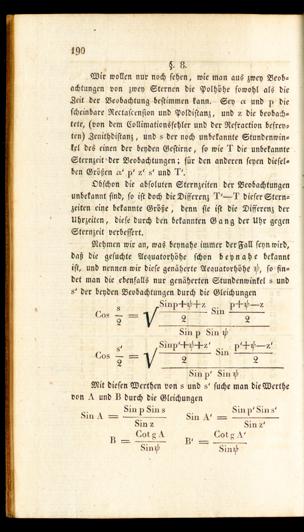 190
§. 8.
Wir wollen nur noch sehen, wie man aus zwey Beob-
achtungen von zwey Sternen die Polhöhe sowohl als die
Zeit der Beobachtung bestimmen kann. Sey α und p die
scheinbare Rectascension und Poldistanz, und z die beobach-
tete, (von dem Collimationsfehler und der Refraction befrey-
ten) Zenithdistanz, und s der noch unbekannte Stundenwin-
kel des einen der beyden Gestirne, so wie T die unbekannte
Sternzeit der Beobachtungen; für den anderen seyen diesel-
ben Größen α' p' z' s' und T'.
Obschon die absoluten Sternzeiten der Beobachtungen
unbekannt sind, so ist doch die Differenz T'—T dieser Stern-
zeiten eine bekannte Größe, denn sie ist die Differenz der
Uhrzeiten, diese durch den bekannten Gang der Uhr gegen
Sternzeit verbessert.
Nehmen wir an, was beynahe immer der Fall seyn wird,
daß die gesuchte Aequatorhöhe schon beynahe bekannt
ist, und nennen wir diese genäherte Aequatorhöhe ψ, so fin-
det man die ebenfalls nur genäherten Stundenwinkel s und
s' der beyden Beobachtungen durch die Gleichungen
Cos s/2 = √ (Sin (p+ψ+z)/2 Sin (p+ψ—z)/2) / (Sin p Sin ψ)
Cos s'/2 = √ (Sin (p'+ψ+z')/2 Sin (p'+ψ—z')/2) / (Sin p' Sin ψ)
Mit diesen Werthen von s und s' suche man die Werthe
von A und B durch die Gleichungen
Sin A = (Sin p Sin s)/(Sin z) Sin A' = (Sin p' Sin s')/(Sin z')
B = (Cotg A)/(Sin ψ) B' = (Cotg A')/(Sin ψ)